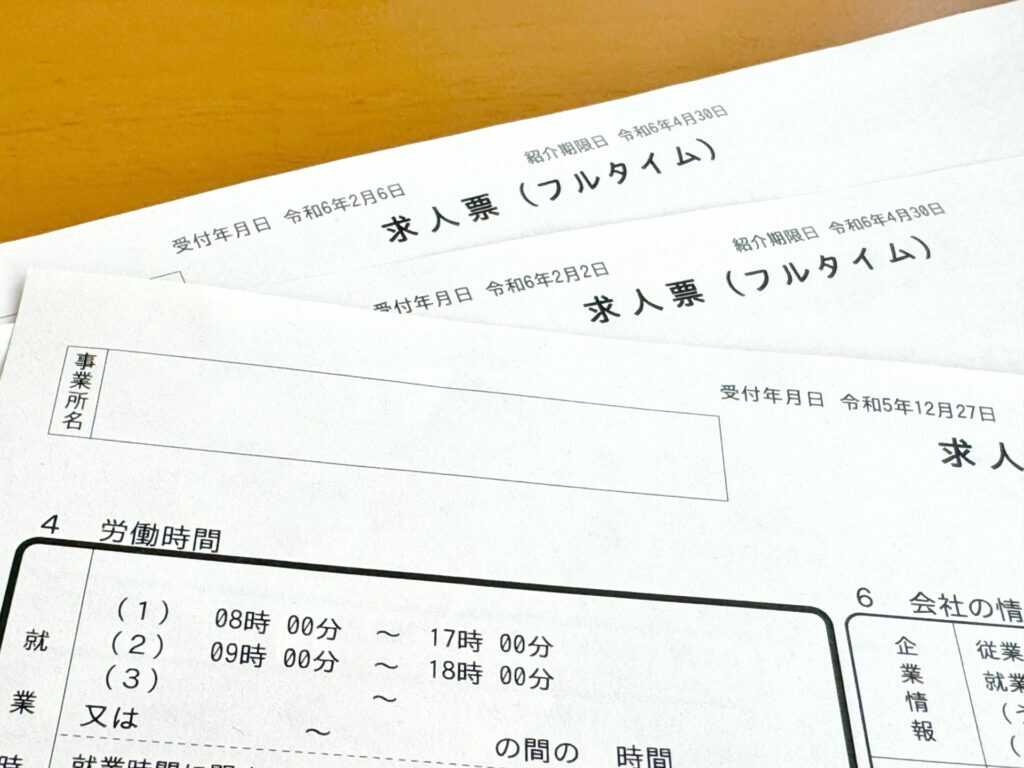 紹介期限日 令和6年4月30日
受付年月日 令和6年2月6日
求人票（フルタイム）
紹介期限日 令和6年4月30日
受付年月日 令和6年2月2日
求人票（フルタイム）
受付年月日 令和5年12月27日
求人
事業所名
4 労働時間
就業時
（1） 08時 00分 ～ 17時 00分
（2） 09時 00分 ～ 18時 00分
（3） ～
又は ～ の間の 時間
就業時間に関
6 会社の情
企業情報
従業
就業